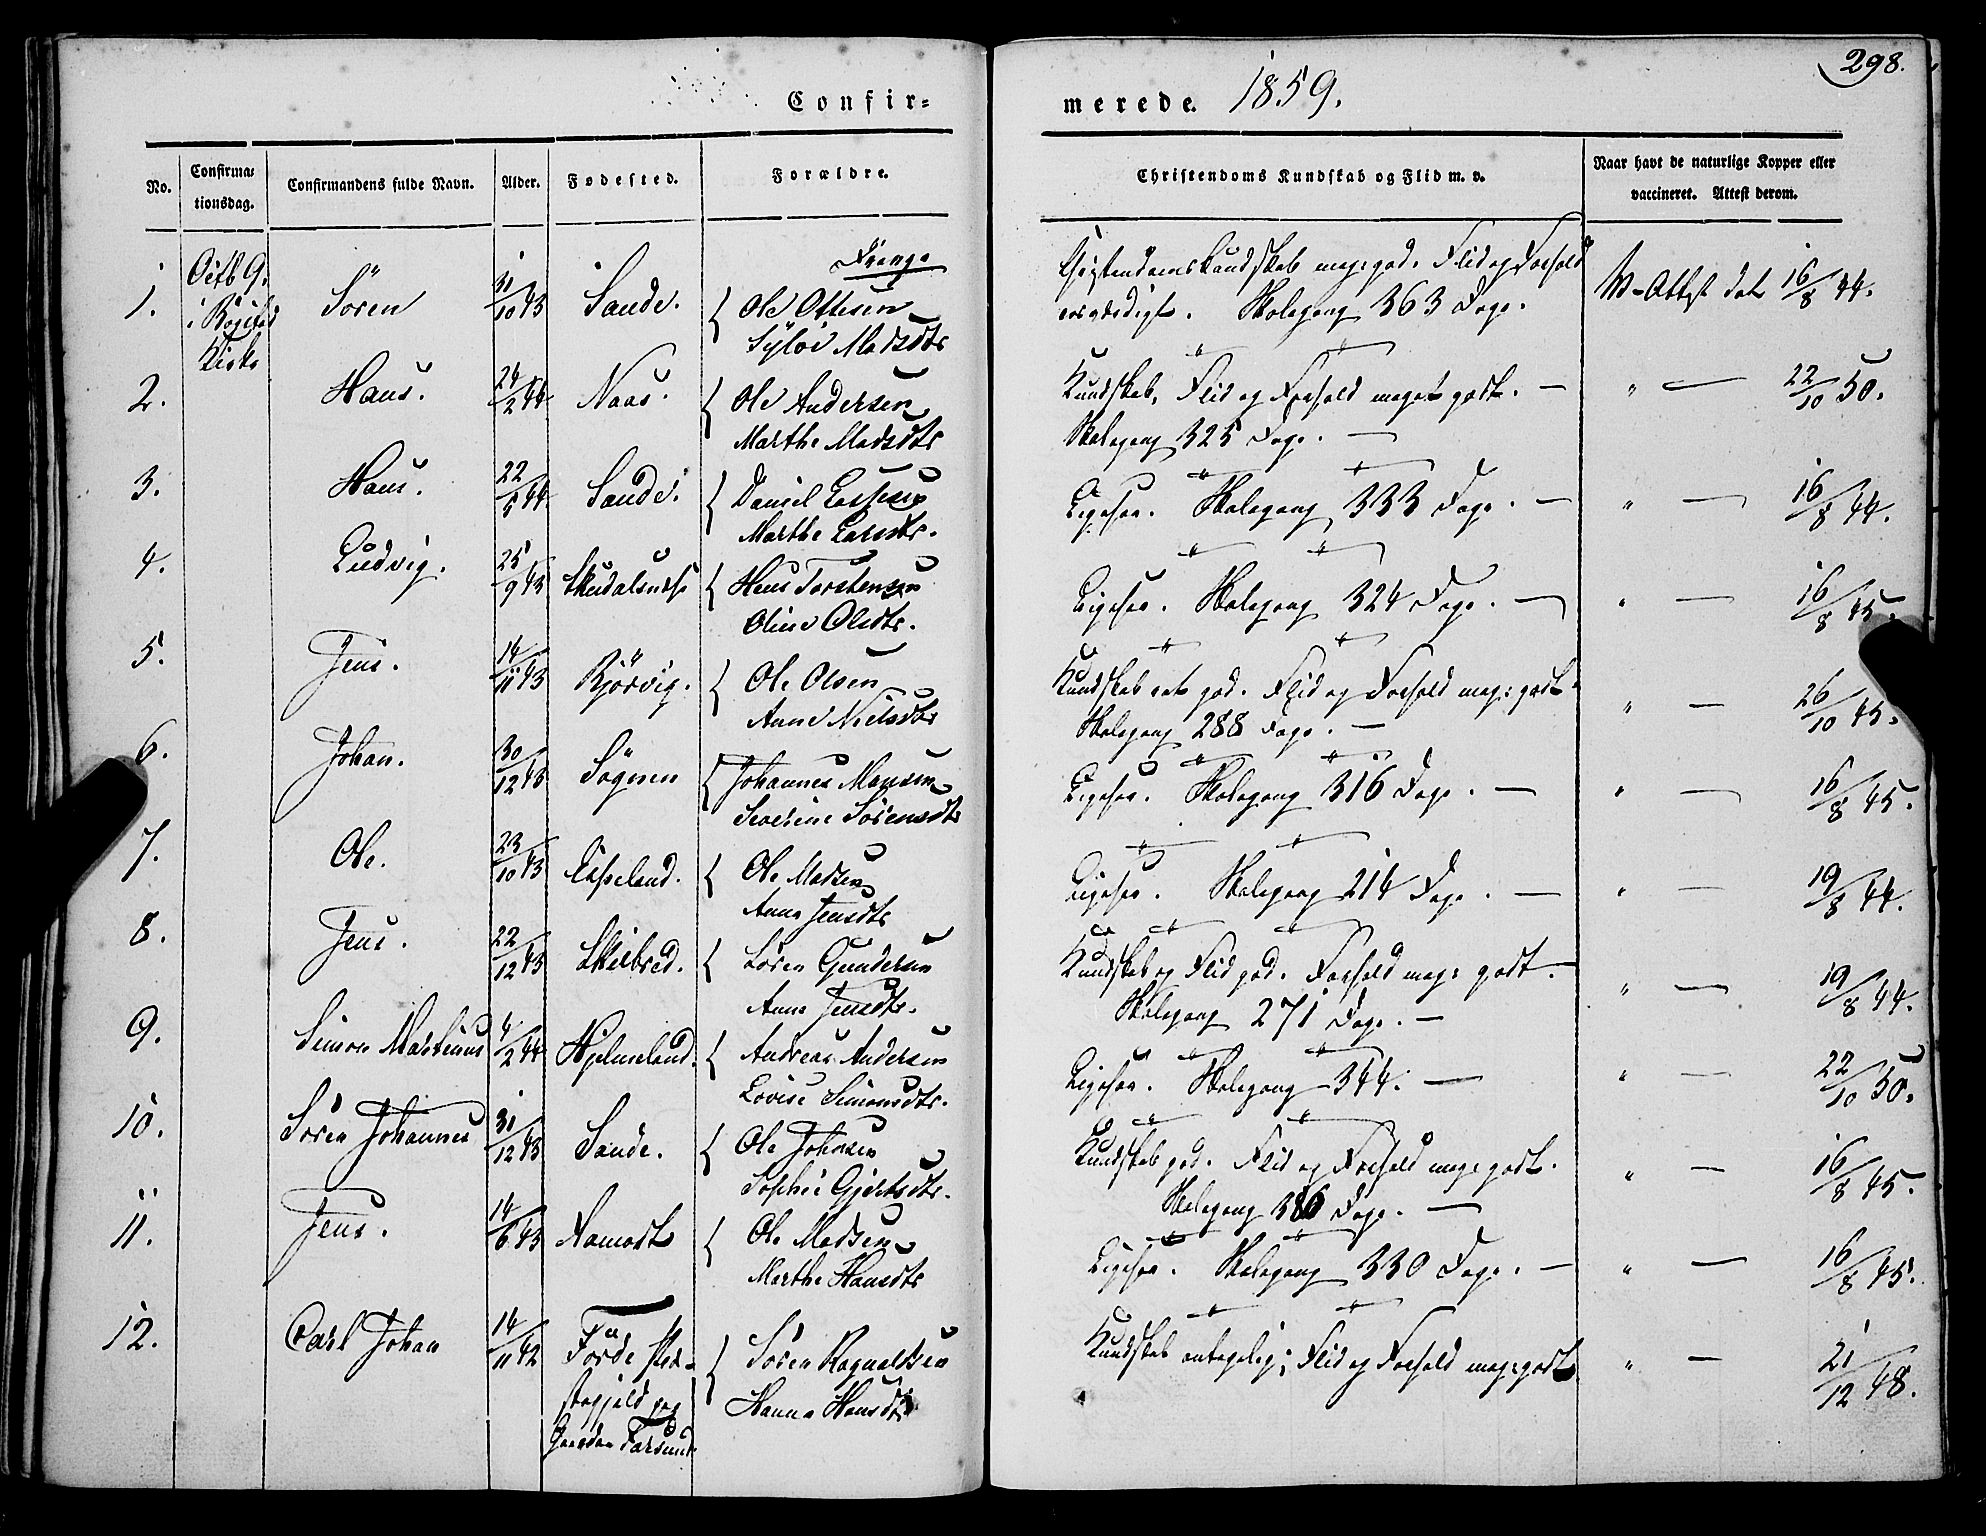 298.
Confir=
merede. 1859.
No.
Confirma=
tionsdag.
Confirmandens fulde Navn.
Alder.
Fødested.
Forældre.
Christendoms Kundskab og Flid m. v.
Naar havt de naturlige Kopper eller
vaccineret. Attest derom.
Drenge
1. Octb 9. Sören 31/10 43 Sande. Ole Ottesen
i
Kirke
Madsdtr
Christendomskundskab meg: god. Flid og Forhold
Skolegang 363 Dage.
V-Attest dat 16/8 44.
2. Hans. 24/2 44 Naas. Ole Andersen
Marthe Madsdtr
Kundskab, Flid og Forhold meget godt. —
Skolegang 325 Dage. —
" — 22/10 50.
3. Hans. 22/5 44 Sande. Daniel
Marthe Larsdtr.
Ligesaa. Skolegang 333 Dage. —
" — 16/8 44.
4. Ludvig. 25/9 43 Hans Torstensen
Oline Olsdtr.
Ligesaa. Skolegang 324 Dage. —
" — 16/8 45.
5. Jens. 14/11 43 Ole Olsen
Anne Nielsdtr
Kundskab ret god. Flid og Forhold meg: godt.
Skolegang 288 Dage. —
" — 26/10 45.
6. Johan. 30/12 43 Sögnen Johannes Monsen
Severine Sörensdtr
Ligesaa. Skolegang 316 Dage. —
" — 16/8 45.
7. Ole. 23/10 43 Espeland. Ole Madsen
Anna Jensdtr
Ligesaa. Skolegang 214 Dage. —
" — 19/8 44.
8. Jens. 22/12 43 Skilbred. Sören Gundersen
Anna Jensdtr.
Kundskab og Flid god. Forhold meg: godt. —
Skolegang 271 Dage. —
" — 19/8 44.
9. Simon Martinus 4/2 44 Hjelmeland. Andreas Andersen
Lovise Simonsdtr.
Ligesaa. Skolegang 344. —
" — 22/10 50.
10. Sören Johannes 31/12 43 Sande. Ole Johnsen
Sophie Gjertsdtr.
Kundskab god. Flid og Forhold meg: godt.
Skolegang Dage. —
" — 16/8 45.
11. Jens. 14/6 43 Ole Madsen
Marthe Hansdtr
Ligesaa. Skolegang 330 Dage. —
" — 16/8 45.
12. Carl Johan 14/11 42 Förde Præ- Sören Ragnaldsen
stegjeld paa Hanna Hansdtr
Gaarden
Kundskab antagelig; Flid og Forhold meg: godt
" — 21/12 48.